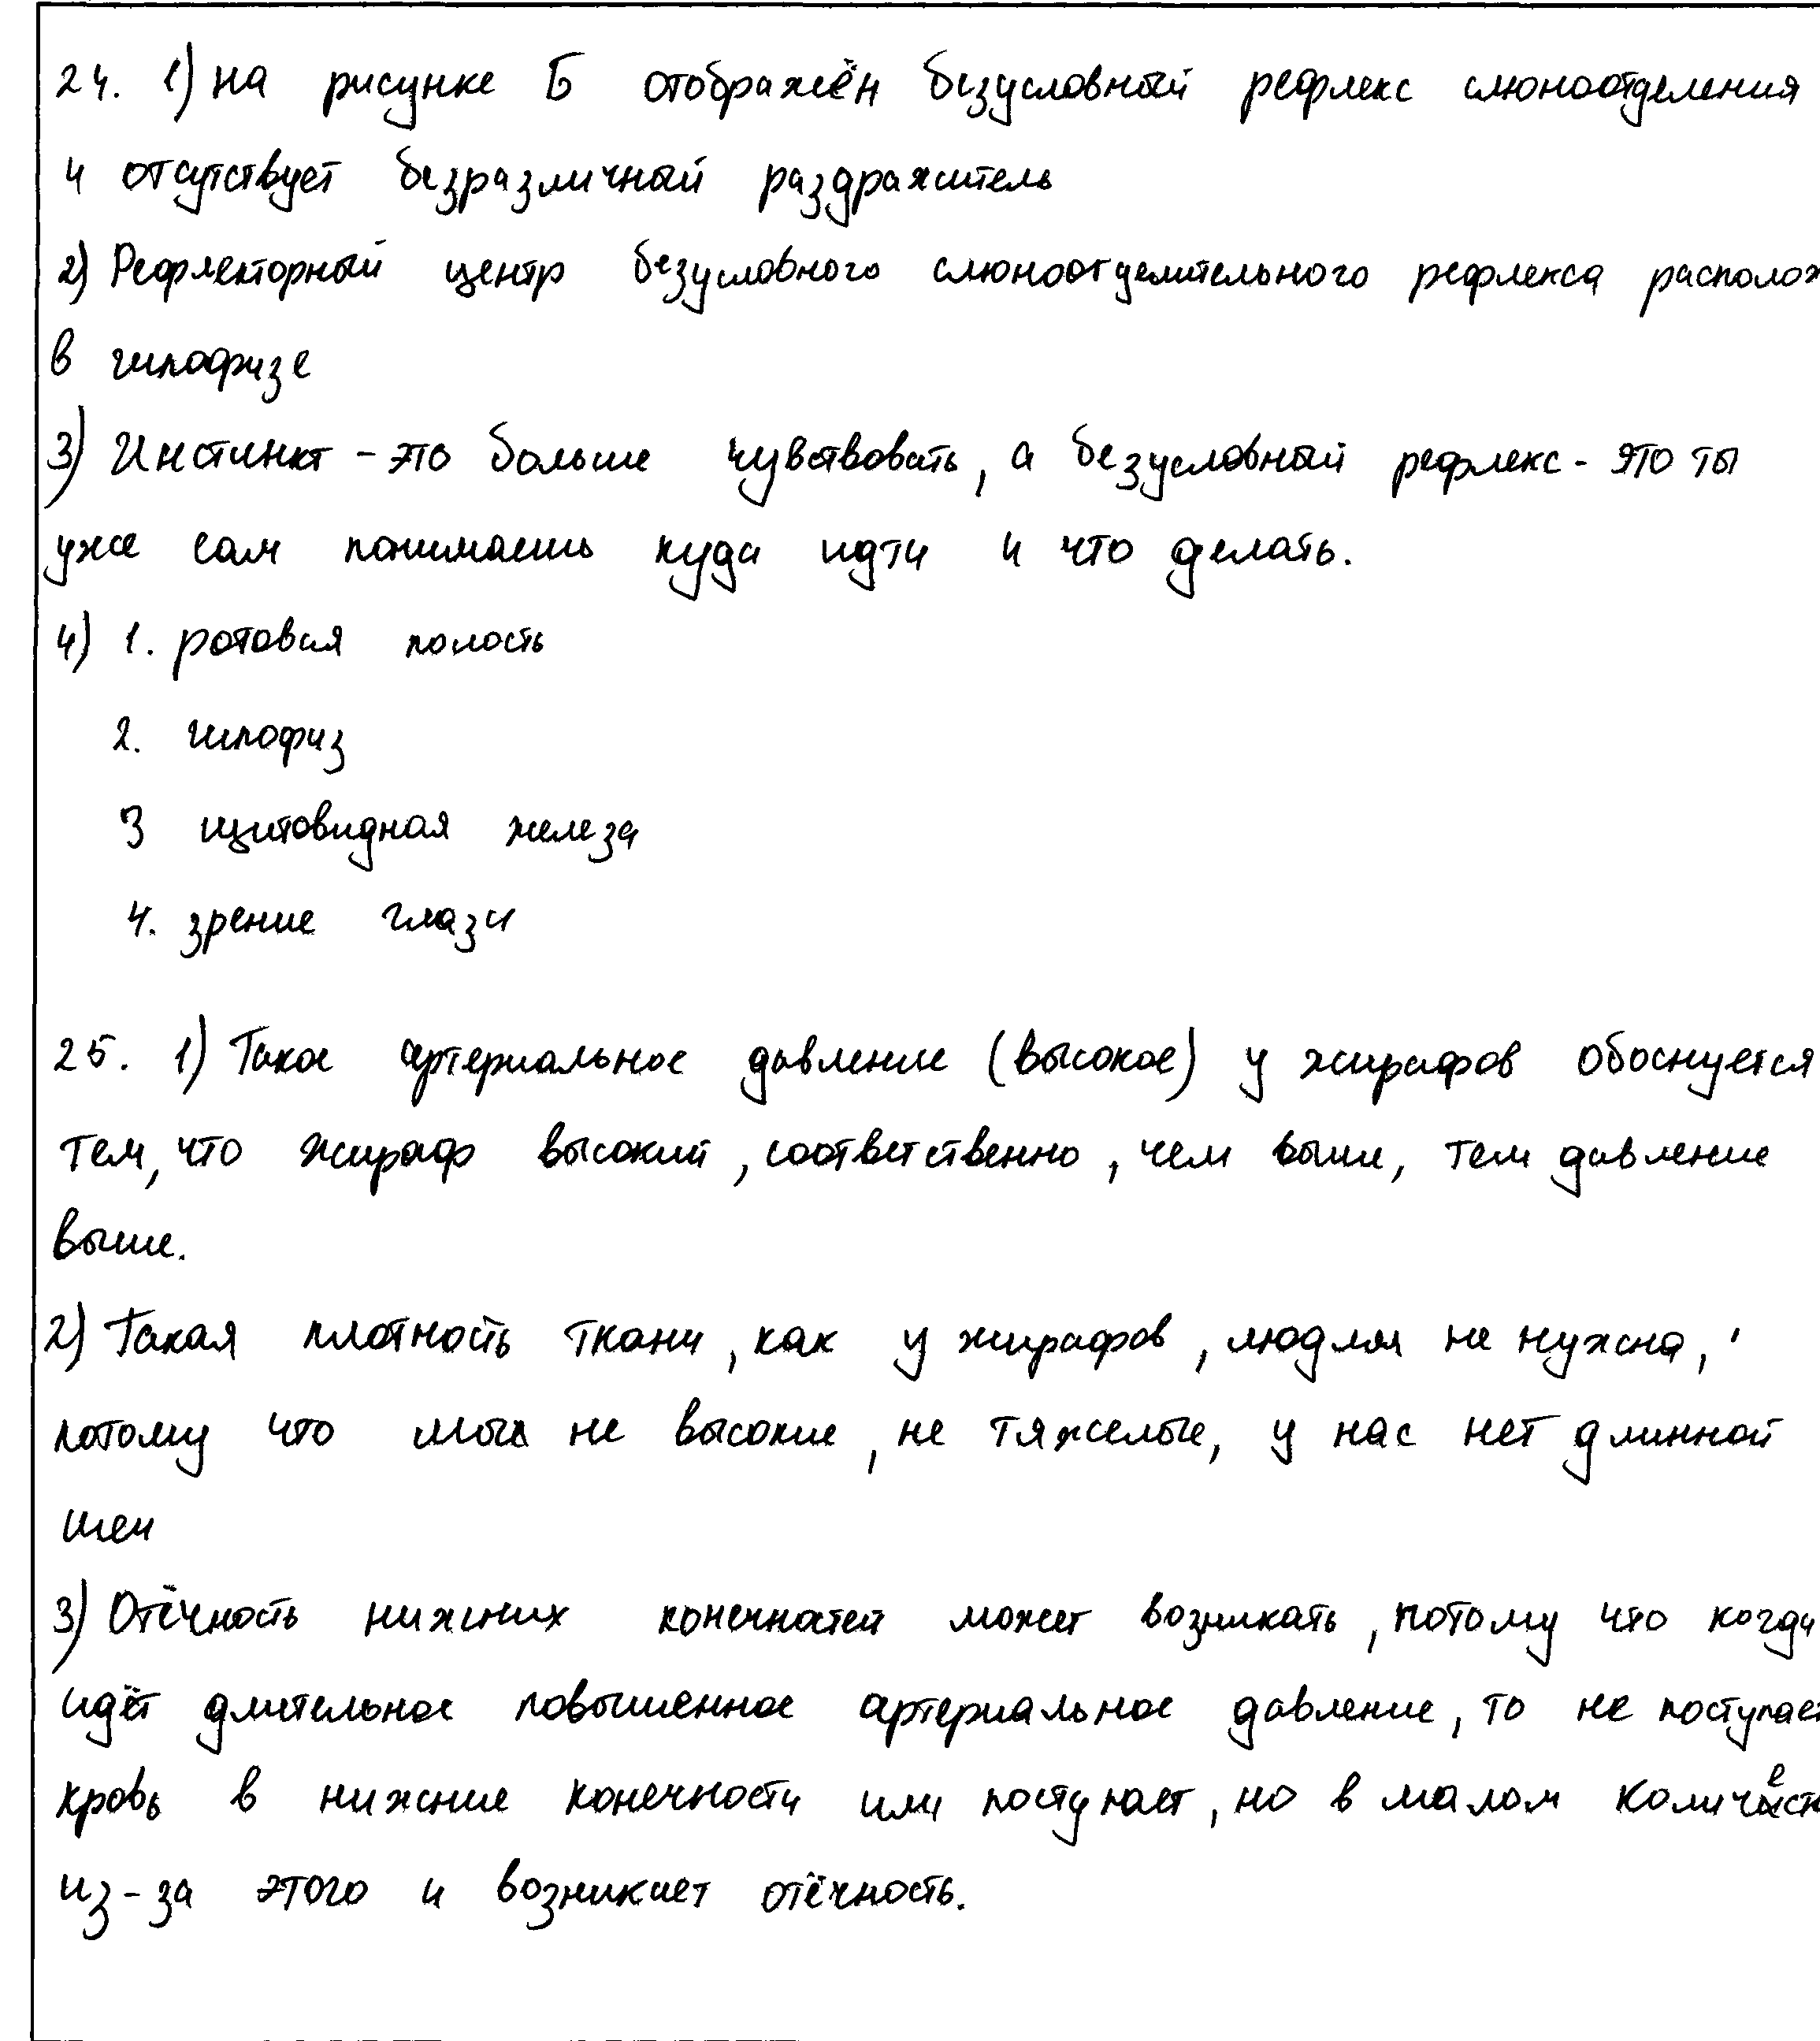 24. 1) На рисунке Б отображён безусловный рефлекс слюноотделения
и отсутствует безразличный раздражитель
2) Рефлекторный центр безусловного слюноотделительного рефлекса располож
в гипофизе
3) Инстинкт - это больше чувствовать, а безусловный рефлекс - это ты
уже сам понимаешь куда идти и что делать.
4) 1. ротовая полость
2. гипофиз
3 щитовидная железа
4. зрение глаза
25. 1) Такое артериальное давление (высокое) у жирафов обоснуется
тем, что жираф высокий, соответственно, чем выше, тем давление
выше.
2) Такая плотность ткани, как у жирафов, людям не нужна,
потому что мы не высокие, не тяжелые, у нас нет длинной
шеи
3) Отёчность нижних конечностей может возникать, потому что когда
идёт длительное повышенное артериальное давление, то не поступает
кровь в нижние конечности или поступает, но в малом количест
из-за этого и возникает отёчность.